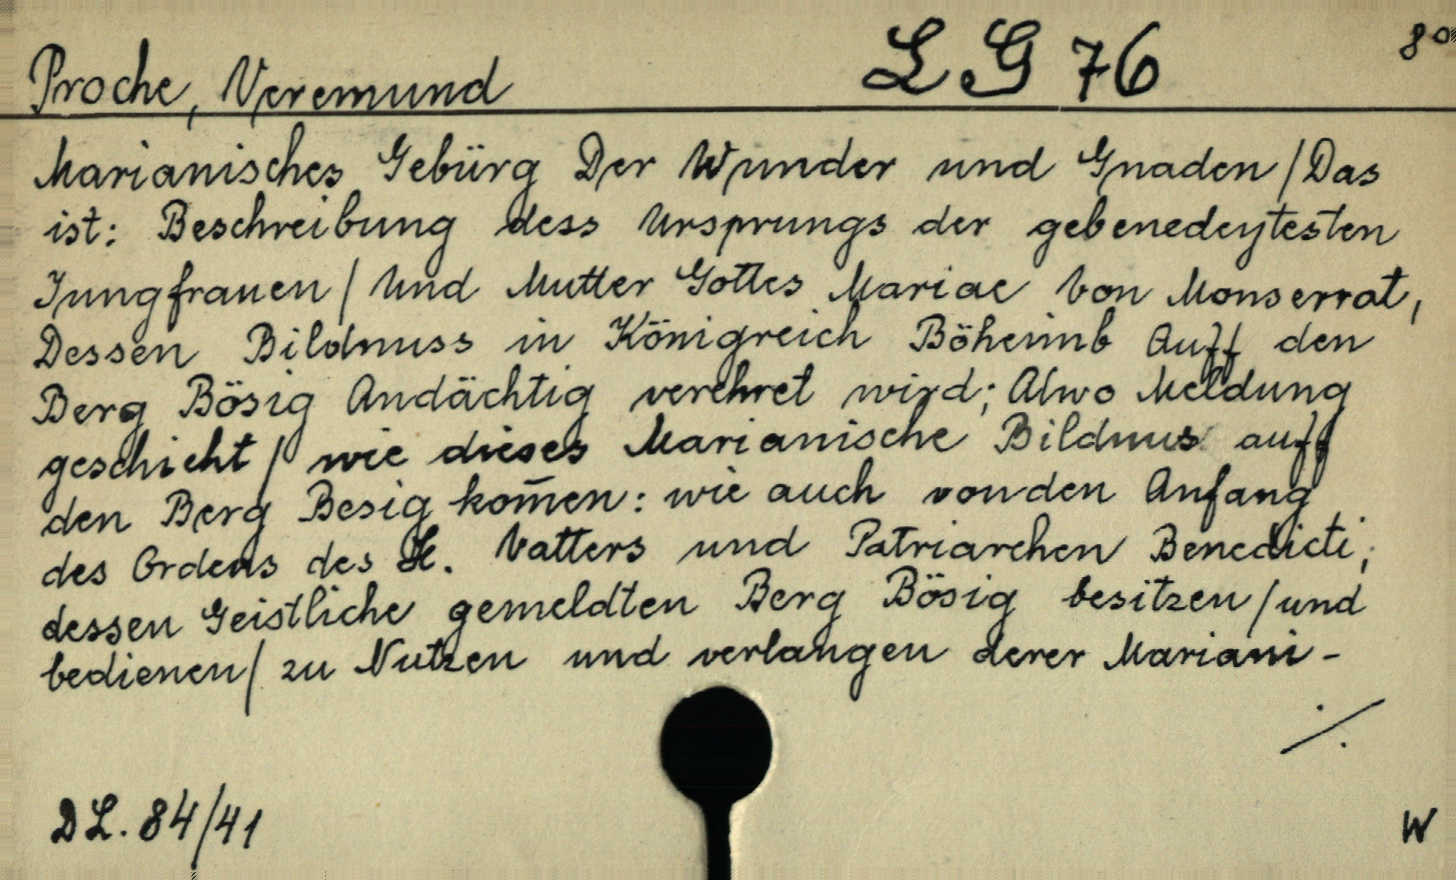 Proche, Veremund LG 76 8°
Marianisches Gebürg Der Wunder und Gnaden / Das
ist: Beschreibung dess Ursprungs der gebenedeytesten
Jungfrauen / Und Mutter Gottes Mariae Von Monserrat,
Dessen Bildnuss in Königreich Böheimb Auff den
Berg Bösig Andächtig verehret wird; Alwo Meldung
geschieht / wie dieses Marianische Bildnus auff
den Berg Besig kom̄en: wie auch von den Anfang
des Ordens des H. Vatters und Patriarchen Benedicti,
dessen Geistliche gemeldten Berg Bösig besitzen / und
bedienen / zu Nutzen und verlangen derer Mariani-
./.
DL. 84/41 W